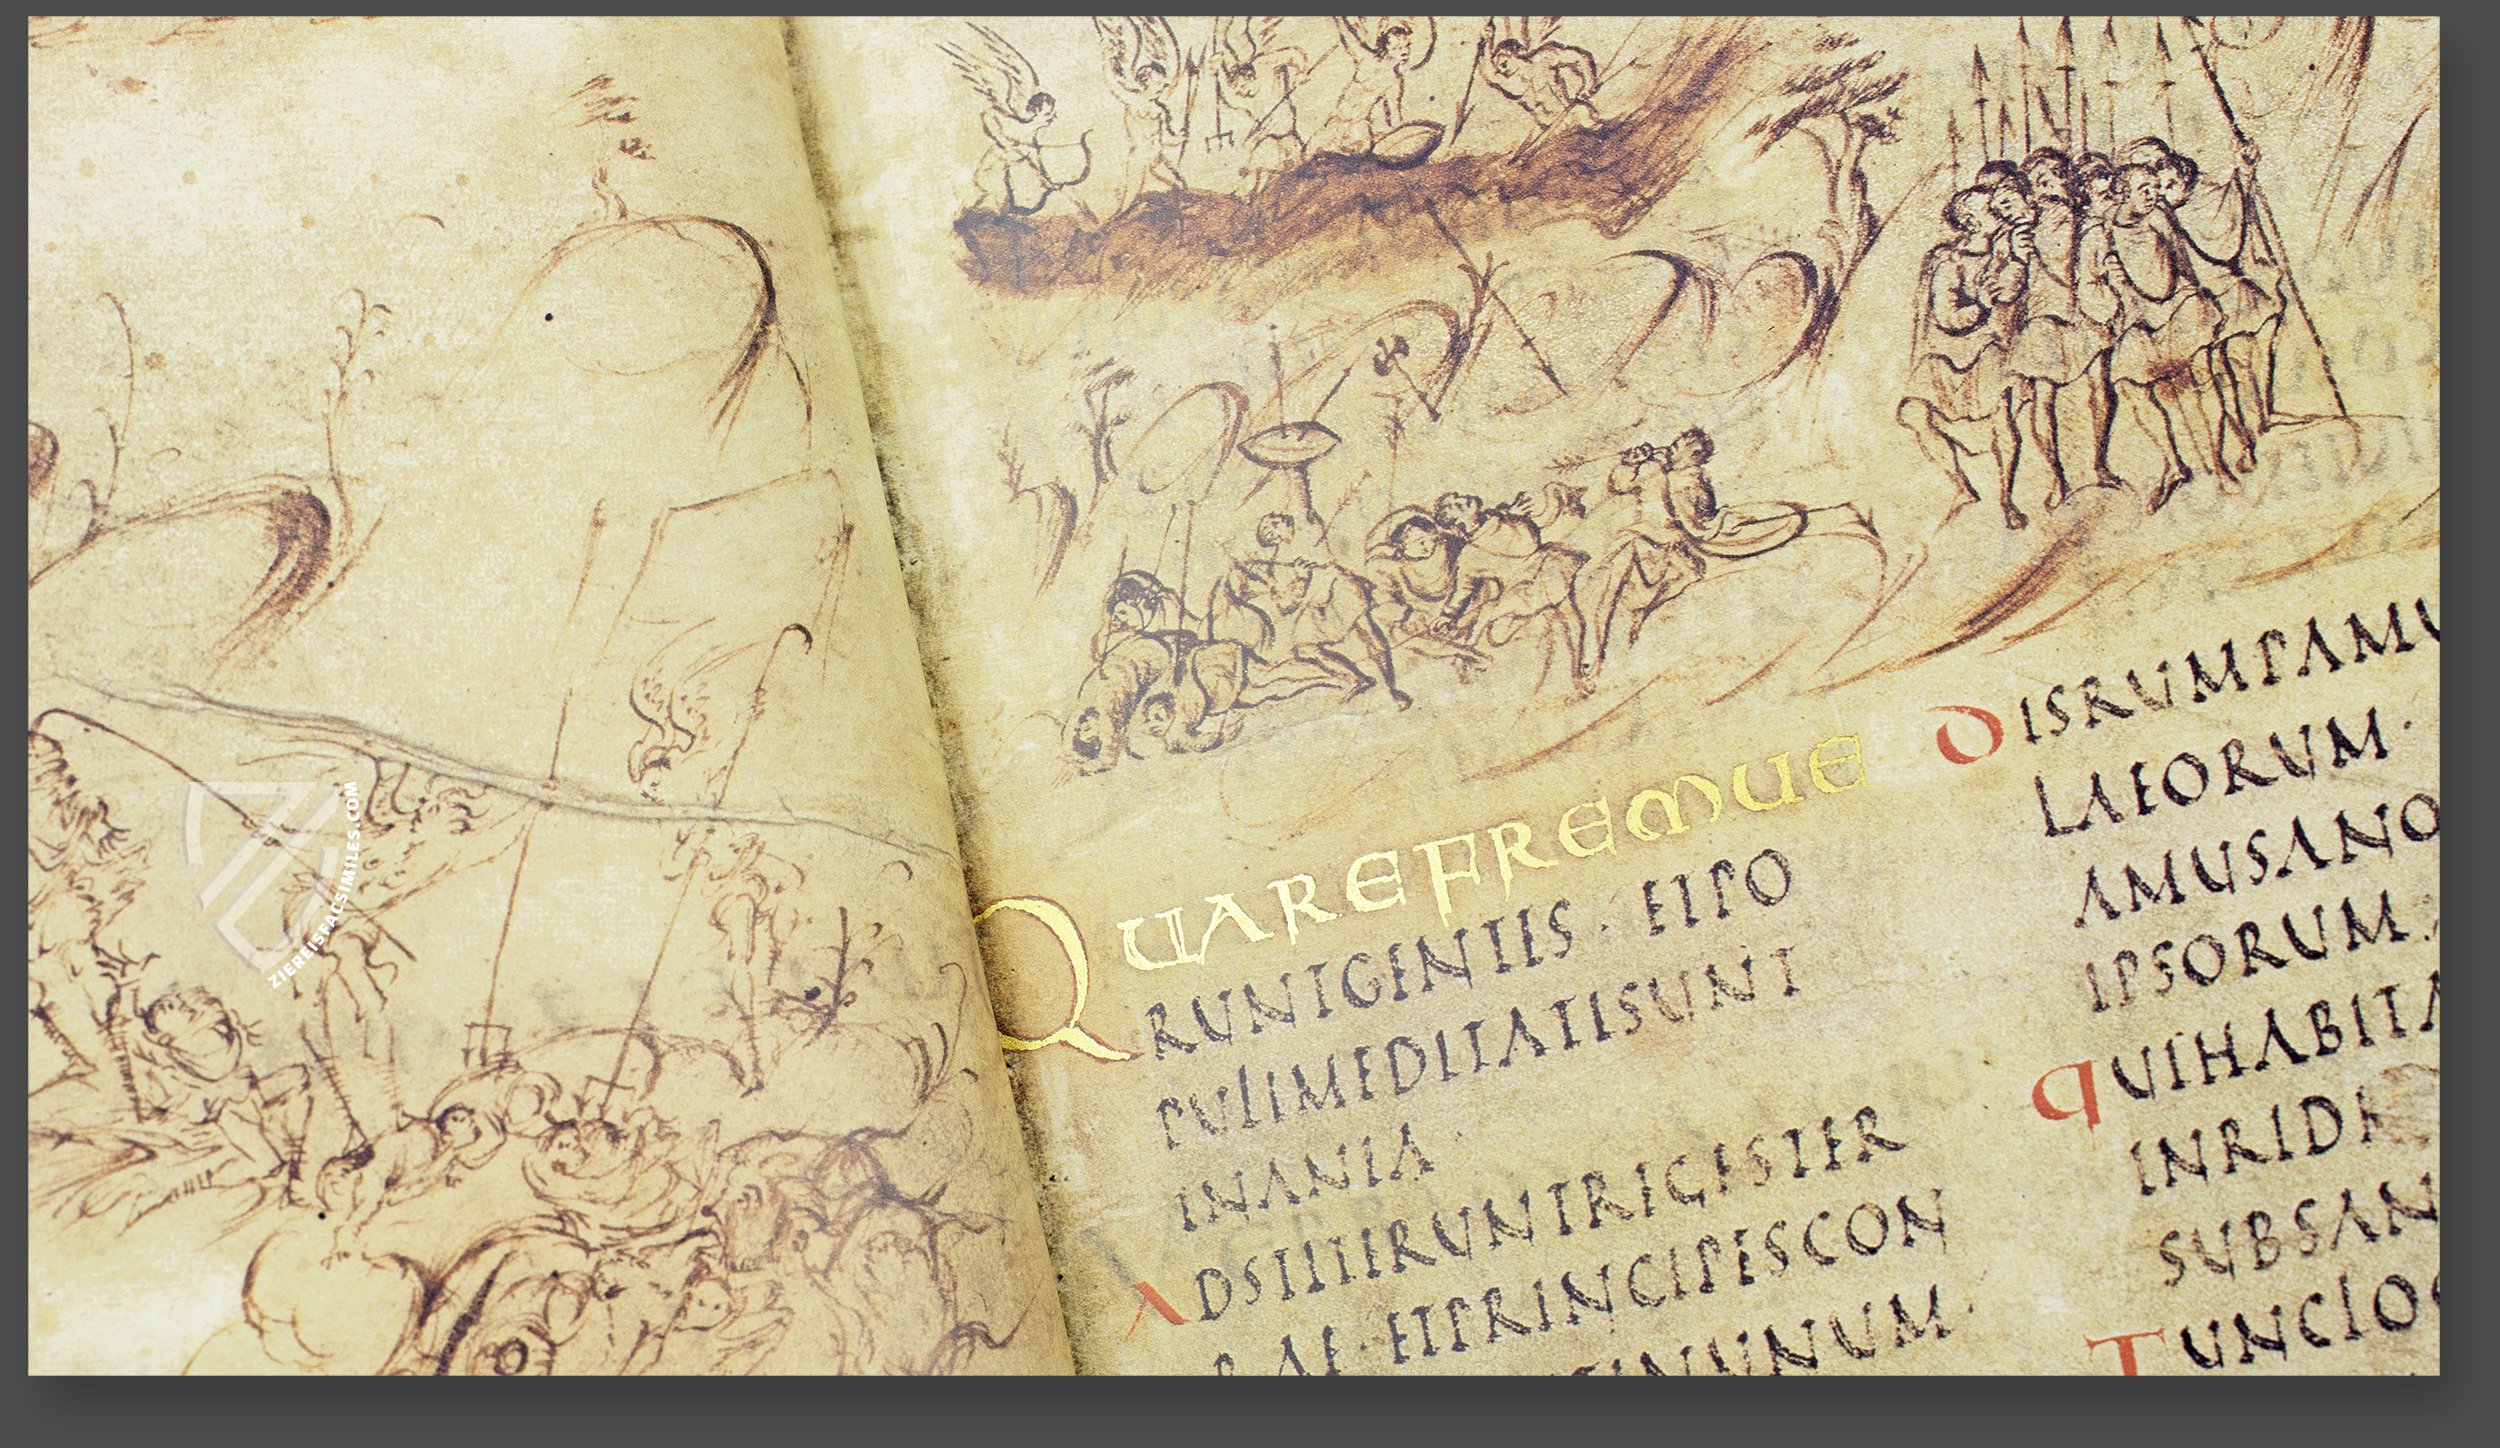 QUAREFREMUE
RUNTGENTES · ETPO
PULIMEDITATISUNT
INANIA ·
ADSTITERUNTREGESTER
RAE · ETPRINCIPESCON
INUNUM ·
DISRUMPAMU
LAEORUM ·
AMUSANO
IPSORUM ·
QUIHABITA
INRIDE
SUBSAN
TUNCLO
ZIEREISFACSIMILES.COM